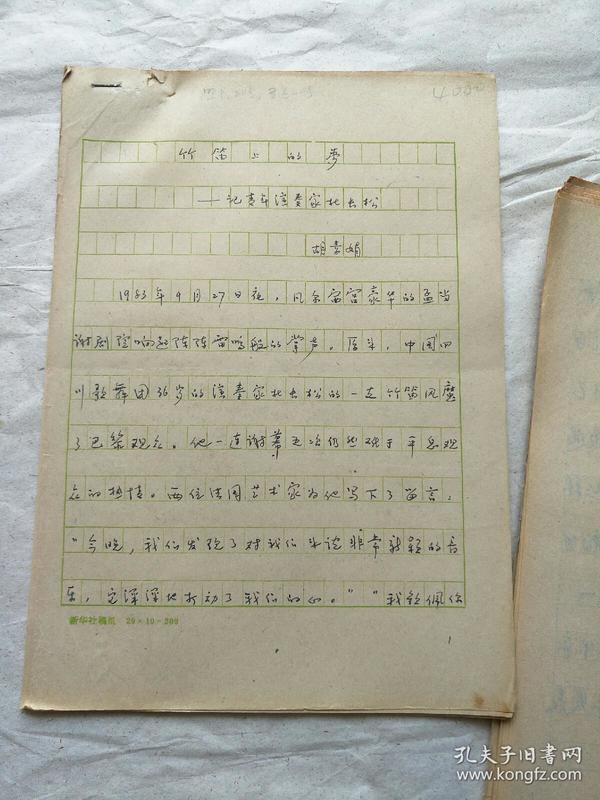 4000
竹笛上的梦
——记青年演奏家杜长松
胡素娟
1983年9月27日夜，凡尔富宫豪华的孟当
谢剧院响起阵阵雷鸣般的掌声。原来，中国四
川歌舞团36岁的演奏家杜长松的一支竹笛风靡
了巴黎观众。他一连谢幕五次仍然难于平息观
众的热情。两位法国艺术家为他写下了留言：
“今晚，我们发现了对我们来说非常新颖的音
乐，它深深地打动了我们的心。”“我钦佩你
新华社稿纸 20×10=200
1
孔夫子旧书网
www.kongfz.com